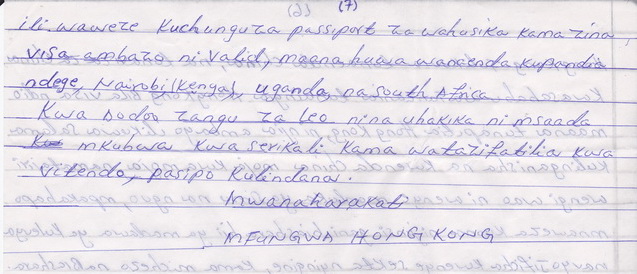 (7)
ili waweze kuchunguza passiport za wahusika kama zina
visa ambazo ni valid, maana huwa wanaenda kupandia
ndege, Nairobi (Kenya), Uganda, na South Africa
Kwa Dodoo zangu za leo nina uhakika ni msaada
mkubwa kwa serikali kama watazifatilia kwa
vitendo, pasipo kulindana.
Mwanaharakati
MFUNGWA HONG KONG